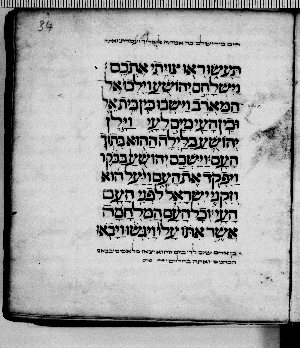 34
תעשו ראו צויתי אתכם
וישלחם יהושע וילכו אל
המארב וישבו בין בית אל
ובין העי מים לעי וילן
יהושע בלילה ההוא בתוך
העם וישכם יהושע בבקר
ויפקד את העם ויעל הוא
וזקני ישראל לפני העם
העי וכל העם המלחמה
אשר אתו עלו ויגשו ויבאו